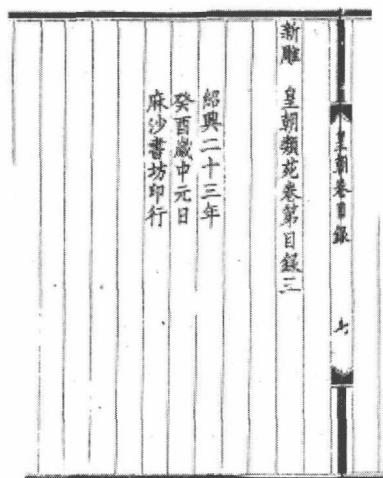 皇朝卷目錄
七
新雕 皇朝類苑卷第目錄三
紹興二十三年
癸酉歲中元日
麻沙書坊印行